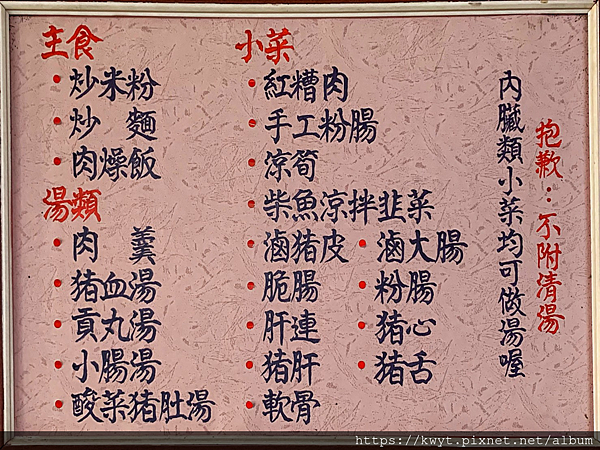 主食
• 炒米粉
• 炒 麵
• 肉燥飯
湯類
• 肉 羹
• 猪血湯
• 貢丸湯
• 小腸湯
• 酸菜猪肚湯
小菜
• 紅糟肉
• 手工粉腸
• 涼筍
• 柴魚涼拌韭菜
• 滷猪皮 • 滷大腸
• 脆腸 • 粉腸
• 肝連 • 猪心
• 猪肝 • 猪舌
• 軟骨
抱歉:不附清湯
內臟類小菜均可做湯喔
https://kwyt.pixnet.net/album